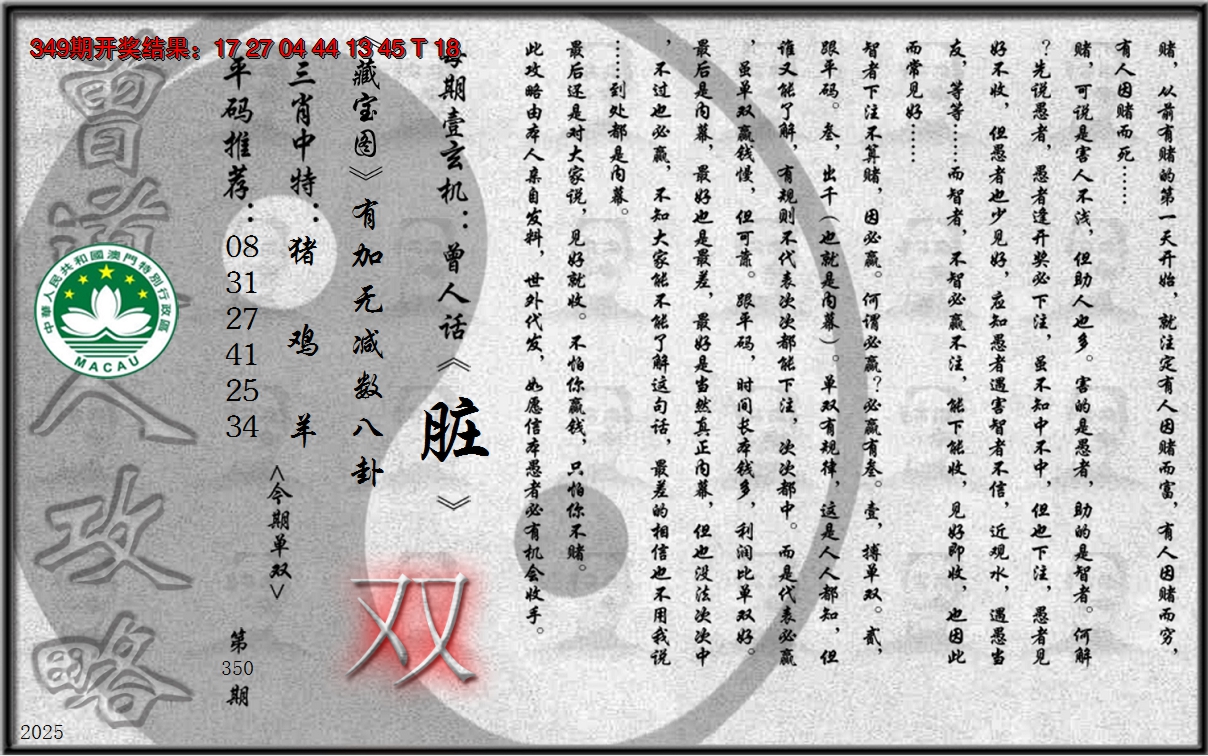 349期开奖结果：17 27 04 44 13 45 T 18
赌，从前有赌的第一天开始，就注定有人因赌而富，有人因赌而穷，
有人因赌而死……
赌，可说是害人不浅，但助人也多。害的是愚者，助的是智者。何解
？先说愚者，愚者逢开奖必下注，虽不知中不中，但也下注，愚者见
好不收，但愚者也少见好，应知愚者遇害智者不信，近观水，遇愚当
友，等等……而智者，不智必赢不注，能下能收，见好即收，也因此
而常见好……
智者下注不算赌，因必赢。何谓必赢？必赢有叁。壹，搏单双。贰，
跟平码。叁，出千（也就是内幕）。单双有规律，这是人人都知，但
谁又能了解，有规则不代表次次都能下注，次次都中。而是代表必赢
，虽单双赢钱慢，但可靠。跟平码，时间长本钱多，利润比单双好。
最后是内幕，最好也是最差，最好是当然真正内幕，但也没法次次中
，不过也必赢，不知大家能不能了解这句话，最差的相信也不用我说
……到处都是内幕。
最后还是对大家说，见好就收。不怕你赢钱，只怕你不赌。
此攻略由本人亲自发料，世外代发，如愿信本愚者必有机会收手。
每期壹玄机：曾人话《脏》
《藏宝图》有加无减数八卦
三肖中特：猪 鸡 羊
<今期单双>
双
平码推荐：
08
31
27
41
25
34
第
350
期
曾道人攻略
中華人民共和國澳門特別行政區
MACAU
2025